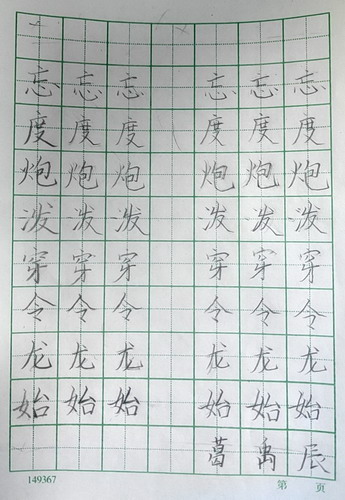 忘忘忘忘忘忘
度度度度度度
炮炮炮炮炮炮
泼泼泼泼泼泼
穿穿穿穿穿穿
令令令令令令
龙龙龙龙龙龙
始始始始始始
葛禹辰
149367 第 页